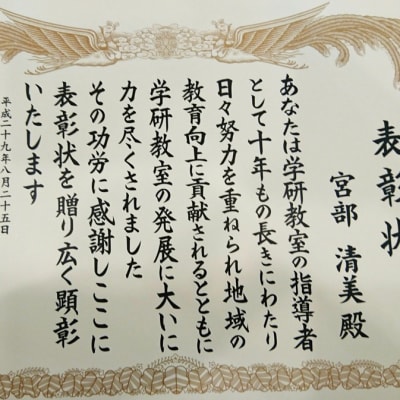 表彰状
宮部 清美 殿
あなたは学研教室の指導者
として十年もの長きにわたり
日々努力を重ねられ地域の
教育向上に貢献されるとともに
学研教室の発展に大いに
力を尽くされました
その功労に感謝しここに
表彰状を贈り広く顕彰
いたします
平成二十九年八月二十五日